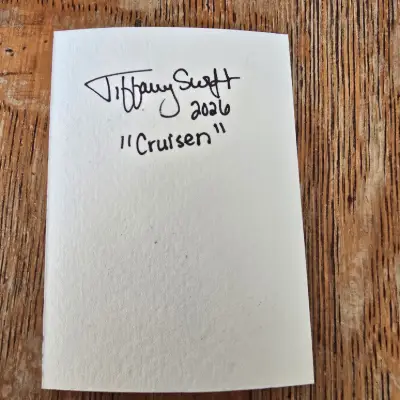 Tiffany Swift
2026
"Cruisen"